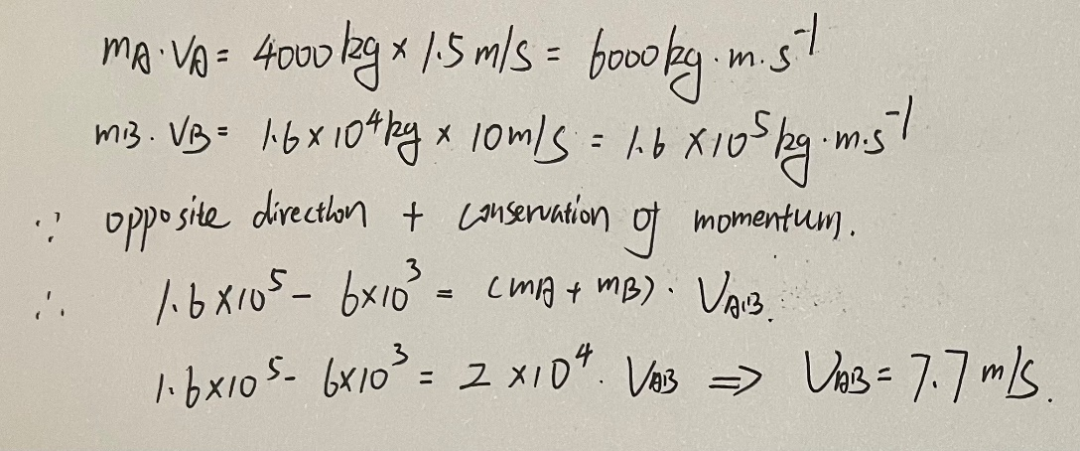 mA·VA = 4000kg × 1.5 m/s = 6000kg·m·s⁻¹
mB·VB = 1.6×10⁴kg × 10m/s = 1.6×10⁵kg·m·s⁻¹
∵ opposite direction + conservation of momentum.
∴ 1.6×10⁵ - 6×10³ = (mA + mB)·VAB.
1.6×10⁵ - 6×10³ = 2×10⁴·VAB ⇒ VAB = 7.7 m/s.